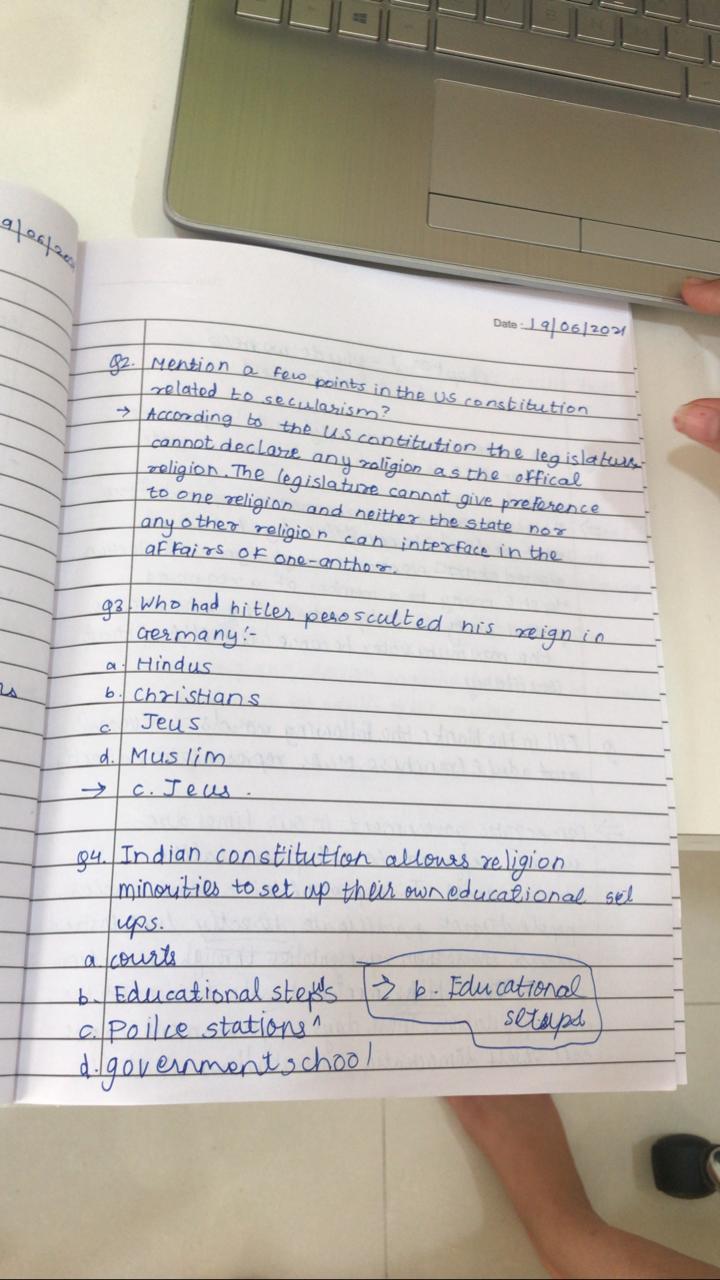 9/06/202
Date: 19/06/2021
Q2. Mention a few points in the US constitution
related to secularism?
→ According to the US contitution the legislature
cannot declare any religion as the offical
religion. The legislature cannot give preference
to one religion and neither the state nor
any other religion can interface in the
affairs of one-anthor.
Q3. Who had hitler perosculted his reign in
Germany:-
a. Hindus
b. Christians
c. Jeus
d. Muslim
→ c. Jeus.
Q4. Indian constitution allows religion
minorities to set up their own educational set
ups.
a. courts
b. Educational steps
c. Poilce stations
d. government school
→ b. Educational
setups